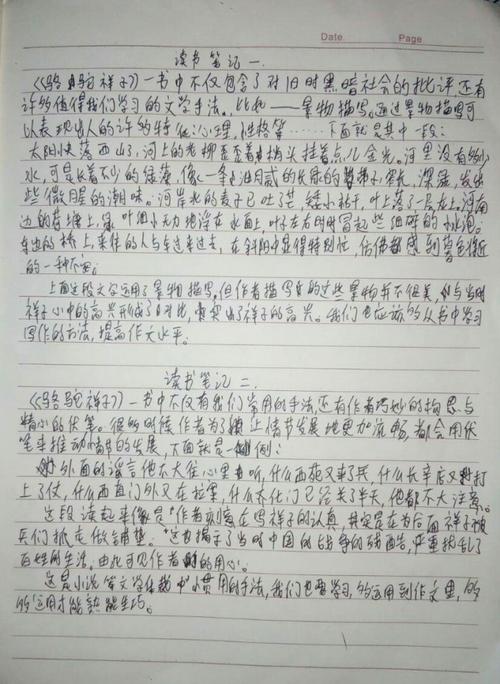 Date. Page
读书笔记一.
《骆驼祥子》一书中不仅包含了对旧时黑暗社会的批评还有
许多值得我们学习的文学手法。比如——景物描写。通过景物描写可
以表现出人的许多特 心理、性格等……下面就是其中一段:
太阳快落西山了,河上的老柳歪歪着梢头挂着点儿金光。河里没有多少
水,可是长着不少的绿藻,像一条油腻的长绿的带子,窄长,深绿,发出
些微腥的潮味。河岸北的麦子已吐了芒,矮小枯干,叶上落了一层灰土。河南
边的荷塘上, 叶细小无力地浮在水面上,叶子左右时时冒起些细碎的小水泡。
东边的桥上,来往的人与车过来过去,在斜阳中显得特别忙,仿佛都感到暮色将近
的一种不安。
上面这段文字运用了景物描写,但作者描写的这些景物并不很美,与当时
祥子心中的高兴形成了对比,突出了祥子的高兴。我们也应该多从书中学习
写作的方法,提高作文水平。
读书笔记二.
《骆驼祥子》一书中不仅有我们常用的手法,还有作者巧妙的构思与
精心的伏笔。很多时候作者为了让情节发展地更加流畅,都会用伏
笔来推动情节的发展,下面就是一例:
外面的谣言他不大往心里听,什么西苑又来了兵,什么长辛店又打
上了仗,什么西直门外又在拉 ,什么齐化门已经关了半天,他都不大注意。
这段读起来像是作者刻意在写祥子的认真,其实是在为后面祥子被
兵们抓走做铺垫。这也揭示了当时中国的战争的残酷,严重扰乱了
百姓的生活。由此可见作者的用心。
这是小说等文学体裁中 惯用的手法,我们也要学习,多运用到作文里,多
多运用才能熟能生巧。